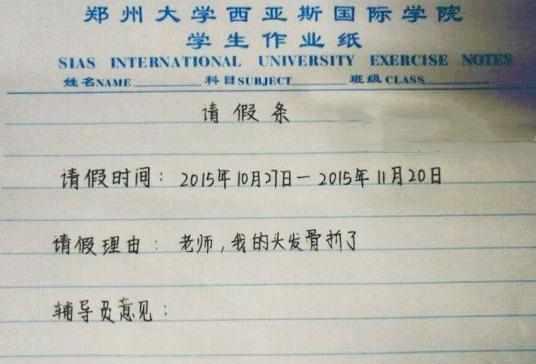 郑州大学西亚斯国际学院
学生作业纸
SIAS INTERNATIONAL UNIVERSITY EXERCISE NOTES
姓名NAME 科目SUBJECT 班级CLASS
请假条
请假时间：2015年10月27日—2015年11月20日
请假理由：老师，我的头发骨折了
辅导员意见：